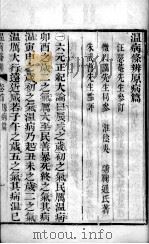 溫病條辨原病篇
汪瑟菴先生參訂
徵以園先生同參 淮陰吳瑭鞠通氏著
朱武曹先生點評
一六元正紀大論曰辰戌之歲初之氣民厲溫病
卯酉之歲二之氣厲大至民善暴死終之氣其病
溫寅申之歲初之氣溫病乃起丑未之歲二之氣
溫厲大行遠近咸若子午之歲五之氣其病溫巳
溫病條辨 卷首 原病篇